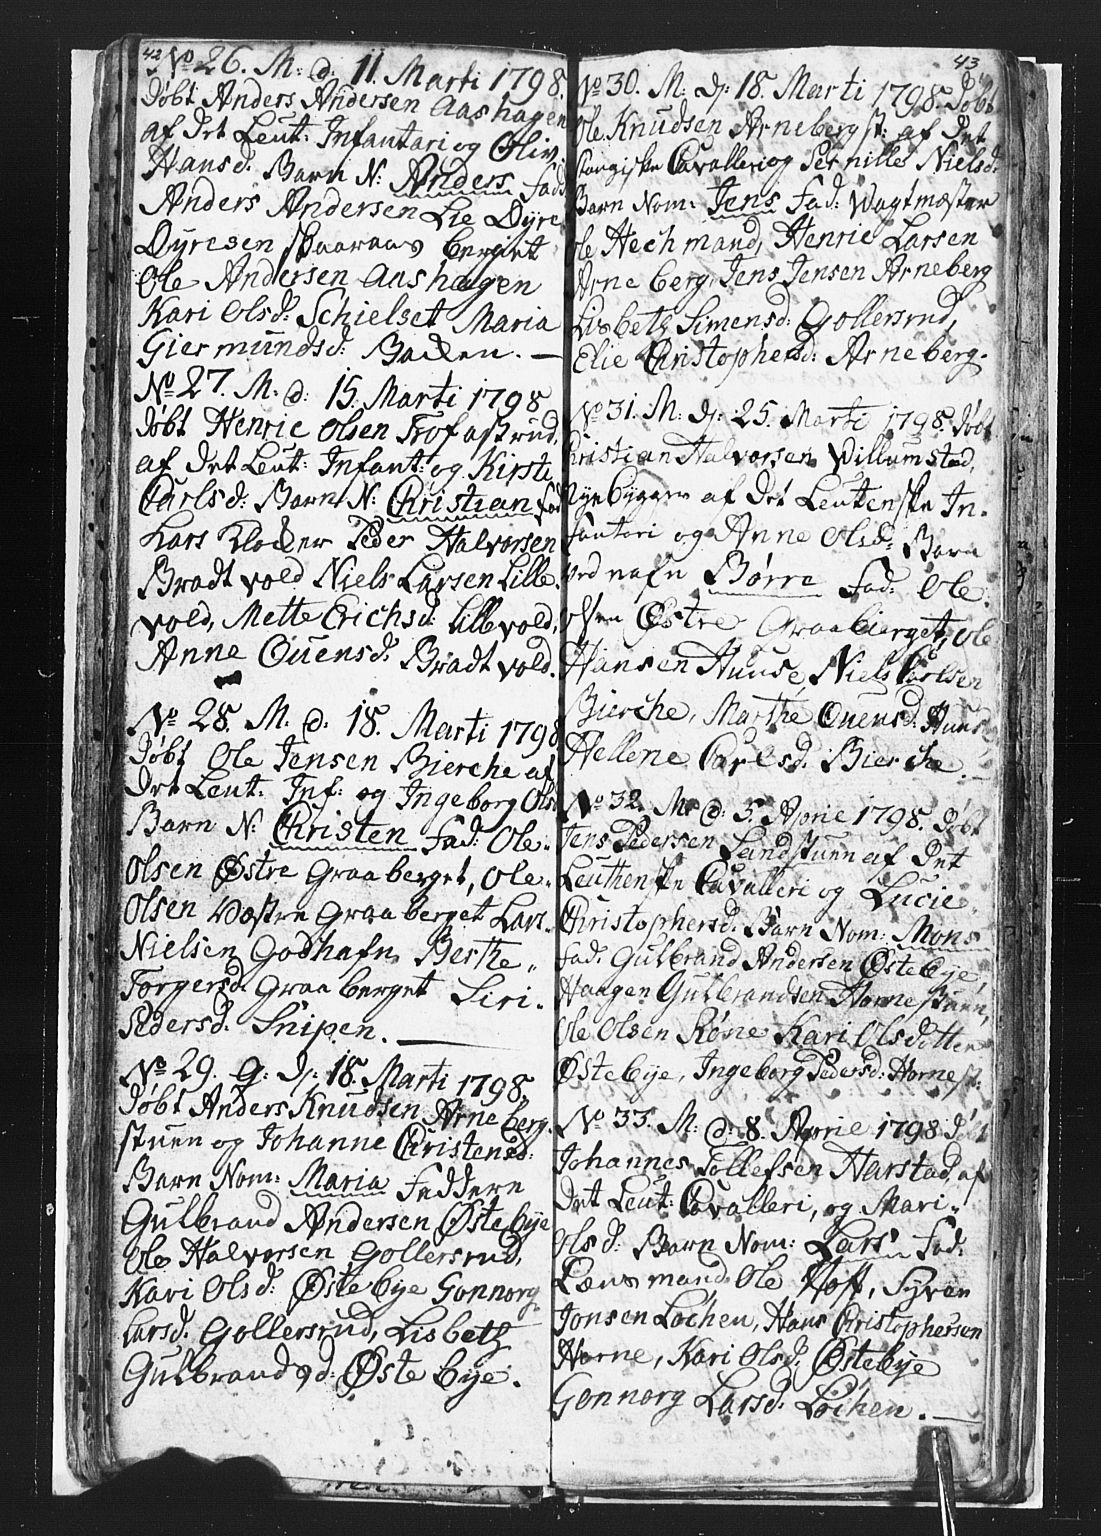 42
No 26. M: d: 11. Marti 1798.
døbt Anders Andersen Aashagen
af det Leut: Infantari og Oliv
Hansd. Barn N: Anders fad:
Anders Andersen Lie Dyre
Dyresen Skaaraas berget
Ole Andersen Aashagen
Kari Olsd. Schielset Maria
Giermundsd: Backen.
No 27. M. d: 15. Marti 1798
døbt Henric Olsen Trofastrud,
af det Leut: Infant: og Kirsti
Carlsd: Barn N: Christian fad
Lars Klocker Peder Halvorsen
Bradtvold Niels Larsen Lille
vold, Mette Erichsd: Lillevold,
Anne Ouensd: Bradtvold.
No 28. M. d: 18. Marti 1798
døbt Ole Jensen Bierche af
det Leut: Inf: og Ingeborg Ols
Barn N: Christen fad: Ole
Olsen Østre Graaberget, Ole
Olsen Wæstre Graaberget Lars
Nielsen Godhafn Berthe
Torgersd. Graaberget Siri
Pedersd. Snipen.
No 29. q: d: 18. Marti 1798,
døbt Anders Knudsen Arneberg
stuen og Johanne Christensd:
Barn Nom: Maria Faddere
Gulbrand Andersen Østebye
Ole Halvorsen Gollersrud,
Kari Olsd: Østebye Gonnorg
Larsd. Gollersrud, Lisbeth
Gulbrandsd: Østebye.
43
No 30. M: d: 18. Marti 1798. døbt
Ole Knudsen Arneberg st: af det
Cavalleri og Pernille Nielsd:
Barn Nom: Jens fad: Wagtmæster
Ole Hechmand, Henric Larsen
Arneberg, Jens Jensen Arneberg
Lisbeth Simensd: Gollersrud,
Elie Christophersd: Arneberg.
No 31. M: d: 25. Marti 1798. døbt
Christian Halvorsen Willumstad,
Nyebygger af det Leutenske In-
fanteri og Anne Olsd: Barn
ved nafn Børre fad: Ole
Olsen Østre Graaberget, Ole
Hansen Huuse, Niels Carlsen
Bierche, Marthe Ouensd: Huus
Hellene Carlsd: Bierche.
No 32. M: d: 5. Aprie 1798. døbt
Jens Pedersen Sandstuen af det
Leuthenske Cavalleri og Lucie
Christophersd. Barn Nom: Mons
fad: Gulbrand Andersen Østebye
Haagen Gulbrandsen Hornestuen,
Ole Olsen Røne Kari Olsdotter
Østebye, Ingeborg Pedersd: Hornest:
No 33. M: d: 8. Aprie 1798 døbt
Johannes Tollefsen Harstad, af
det Leut: Cavalleri, og Mari
Olsd: Barn Nom: Lars fad:
Lensmand Ole Hoff, Syver
Jonsen Løchen, Hans Christophersen
Horne, Kari Olsd. Østebye
Gonnorg Larsd: Løchen.